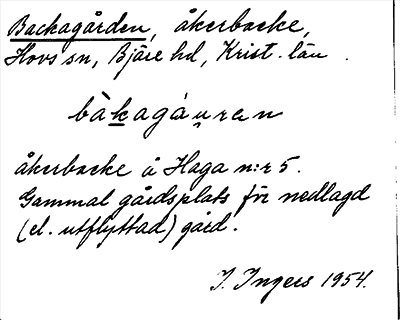 Backagården, åkerbacke,
Hovs sn, Bjäre hd, Krist. län.
bàkagáu̯ren
åkerbacke å Haga n:r 5.
Gammal gårdsplats för nedlagd
(el. utflyttad) gård.
I. Ingers 1954.